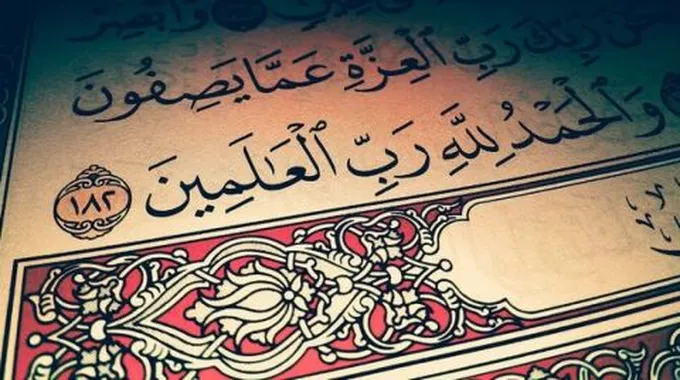 وَأَبْصِرْ
رَبِّكَ رَبِّ ٱلْعِزَّةِ عَمَّا يَصِفُونَ
وَٱلْحَمْدُ لِلَّهِ رَبِّ ٱلْعَٰلَمِينَ ١٨٢